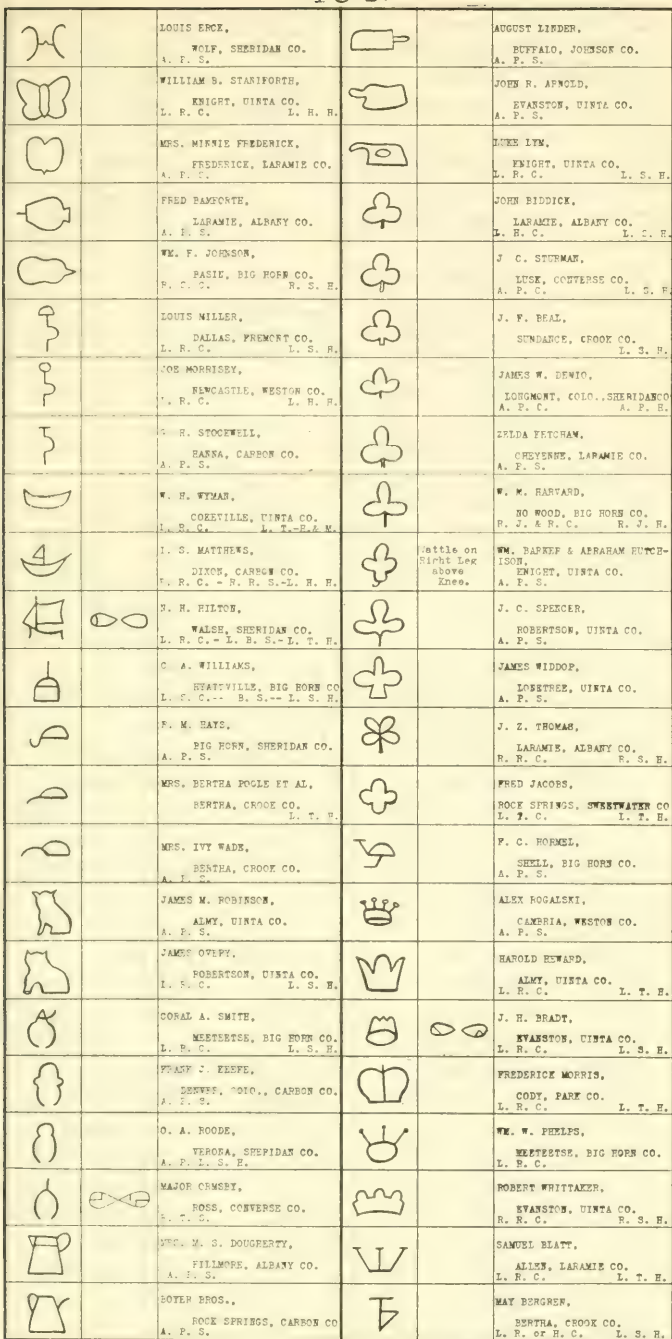 LOUIS ERCK,
WOLF, SHERIDAN CO.
A. P. S.
WILLIAM B. STANIFORTH,
KNIGHT, UINTA CO.
L. R. C. L. H. H.
MRS. MINNIE FREDERICK,
FREDERICK, LARAMIE CO.
A. P. S.
FRED BAMFORTH,
LARAMIE, ALBANY CO.
A. P. S.
WM. F. JOHNSON,
BASIN, BIG HORN CO.
R. S. H.
LOUIS MILLER,
DALLAS, FREMONT CO.
L. R. C. L. S. H.
JOE MORRISEY,
NEWCASTLE, WESTON CO.
L. R. C. L. H. H.
H. STOCKWELL,
HANNA, CARBON CO.
A. P. S.
W. H. WYMAN,
COKEVILLE, UINTA CO.
L. T.-H.& M.
I. S. MATTHEWS,
DIXON, CARBON CO.
L. R. C. - R. R. S.-L. H. H.
N. H. HILTON,
WALSH, SHERIDAN CO.
L. R. C.- L. B. S.- L. T. H.
A. WILLIAMS,
HYATTVILLE, BIG HORN CO
L. S. C.-- B. S.-- L. S. H.
M. HAYS,
BIG HORN, SHERIDAN CO.
A. P. S.
MRS. BERTHA POOLE ET AL,
BERTHA, CROOK CO.
L. T. H.
MRS. IVY WADE,
BERTHA, CROOK CO.
A. P. S.
JAMES M. ROBINSON,
ALMY, UINTA CO.
A. P. S.
JAMES OVERY,
ROBERTSON, UINTA CO.
L. R. C. L. S. H.
CORAL A. SMITH,
MEETEETSE, BIG HORN CO.
L. R. C. L. S. H.
FRANK J. KEEFE,
DENVER, COLO., CARBON CO.
A. P. S.
O. A. ROODE,
VERONA, SHERIDAN CO.
A. P. L. S. H.
MAJOR ORMSBY,
ROSS, CONVERSE CO.
MRS. M. S. DOUGHERTY,
FILLMORE, ALBANY CO.
A. P. S.
BOYER BROS.,
ROCK SPRINGS, CARBON CO
A. P. S.
AUGUST LINDER,
BUFFALO, JOHNSON CO.
A. P. S.
JOHN R. ARNOLD,
EVANSTON, UINTA CO.
A. P. S.
LUKE LYM,
KNIGHT, UINTA CO.
L. R. C. L. S. H.
JOHN BIDDICK,
LARAMIE, ALBANY CO.
L. H. C. L. S. H.
J C. STURMAN,
LUSK, CONVERSE CO.
A. P. C. L. S. H.
J. F. BEAL,
SUNDANCE, CROOK CO.
L. S. H.
JAMES W. DENIO,
LONGMONT, COLO., SHERIDAN CO
A. P. C. A. P. H.
ZELDA KETCHAM,
CHEYENNE, LARAMIE CO.
A. P. S.
W. M. HARVARD,
NO WOOD, BIG HORN CO.
R. J. & R. C. R. J. H.
Cattle on
Right Leg
above
Knee.
WM. BARKER & ABRAHAM HUTCH-
ISON,
KNIGHT, UINTA CO.
A. P. S.
J. C. SPENCER,
ROBERTSON, UINTA CO.
A. P. S.
JAMES WIDDOP,
LONETREE, UINTA CO.
A. P. S.
J. Z. THOMAS,
LARAMIE, ALBANY CO.
R. R. C. R. S. H.
FRED JACOBS,
ROCK SPRINGS, SWEETWATER CO
L. T. H.
F. C. HORMEL,
SHELL, BIG HORN CO.
A. P. S.
ALEX ROGALSKI,
CAMBRIA, WESTON CO.
A. P. S.
HAROLD HEWARD,
ALMY, UINTA CO.
L. R. C. L. T. H.
J. H. BRADT,
EVANSTON, UINTA CO.
L. R. C. L. S. H.
FREDERICK MORRIS,
CODY, PARK CO.
L. R. C. L. T. H.
WM. W. PHELPS,
MEETEETSE, BIG HORN CO.
L. R. C.
ROBERT WHITTAKER,
EVANSTON, UINTA CO.
R. R. C. R. S. H.
SAMUEL BLATT,
ALLEN, LARAMIE CO.
L. R. C. L. T. H.
MAY BERGREN,
BERTHA, CROOK CO.
L. R. or H. C. L. S. H.